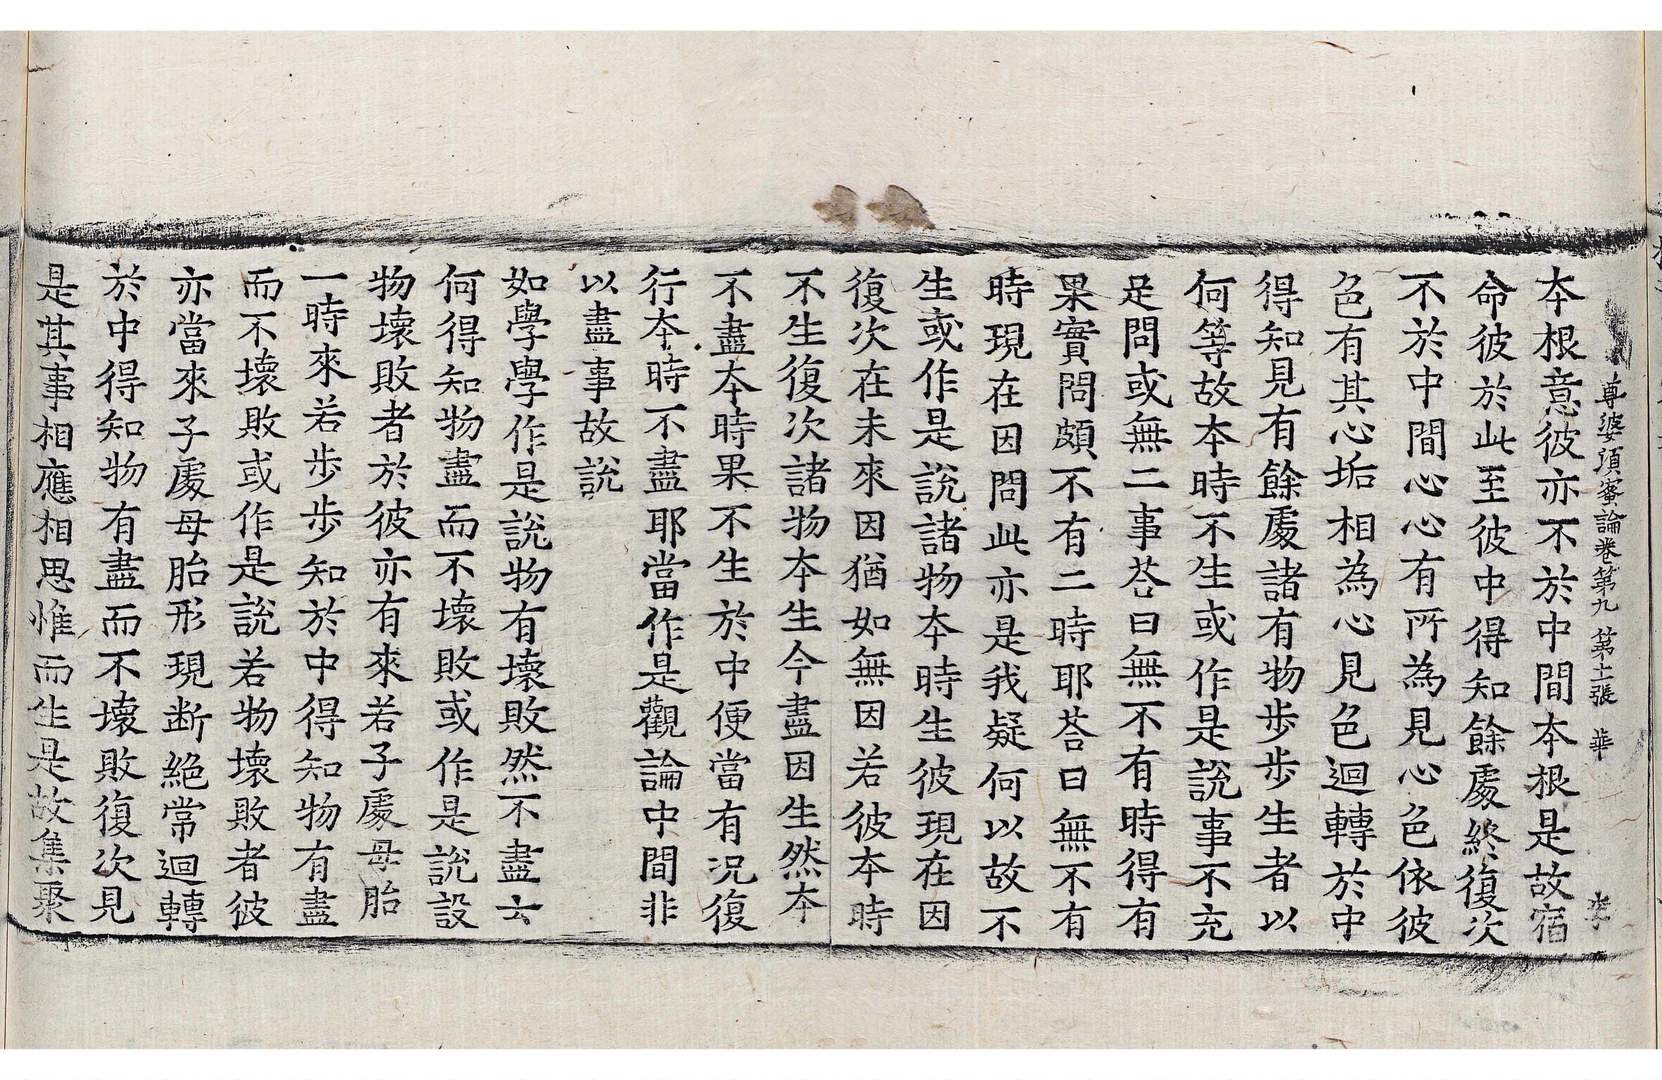 尊婆須蜜論卷第九 第十一張 華
本根意彼亦不於中間本根是故宿
命彼於此至彼中得知餘處終復次
不於中間心心有所為見心色依彼
色有其心垢相為心見色迴轉於中
得知見有餘處諸有物步步生者以
何等故本時不生或作是說事不充
足問或無二事荅曰無不有時得有
果實問頗不有二時耶荅曰無不有
時現在因問此亦是我疑何以故不
生或作是說諸物本時生彼現在因
復次在未來因猶如無因若彼本時
不生復次諸物本生今盡因生然本
不盡本時果不生於中便當有況復
行本時不盡耶當作是觀論中間非
以盡事故說
如學學作是說物有壞敗然不盡云
何得知物盡而不壞敗或作是說設
物壞敗者於彼亦有來若子處母胎
一時來若步步知於中得知物有盡
而不壞敗或作是說若物壞敗者彼
亦當來子處母胎形現断絕常迴轉
於中得知物有盡而不壞敗復次見
是其事相應相思惟而生是故集聚